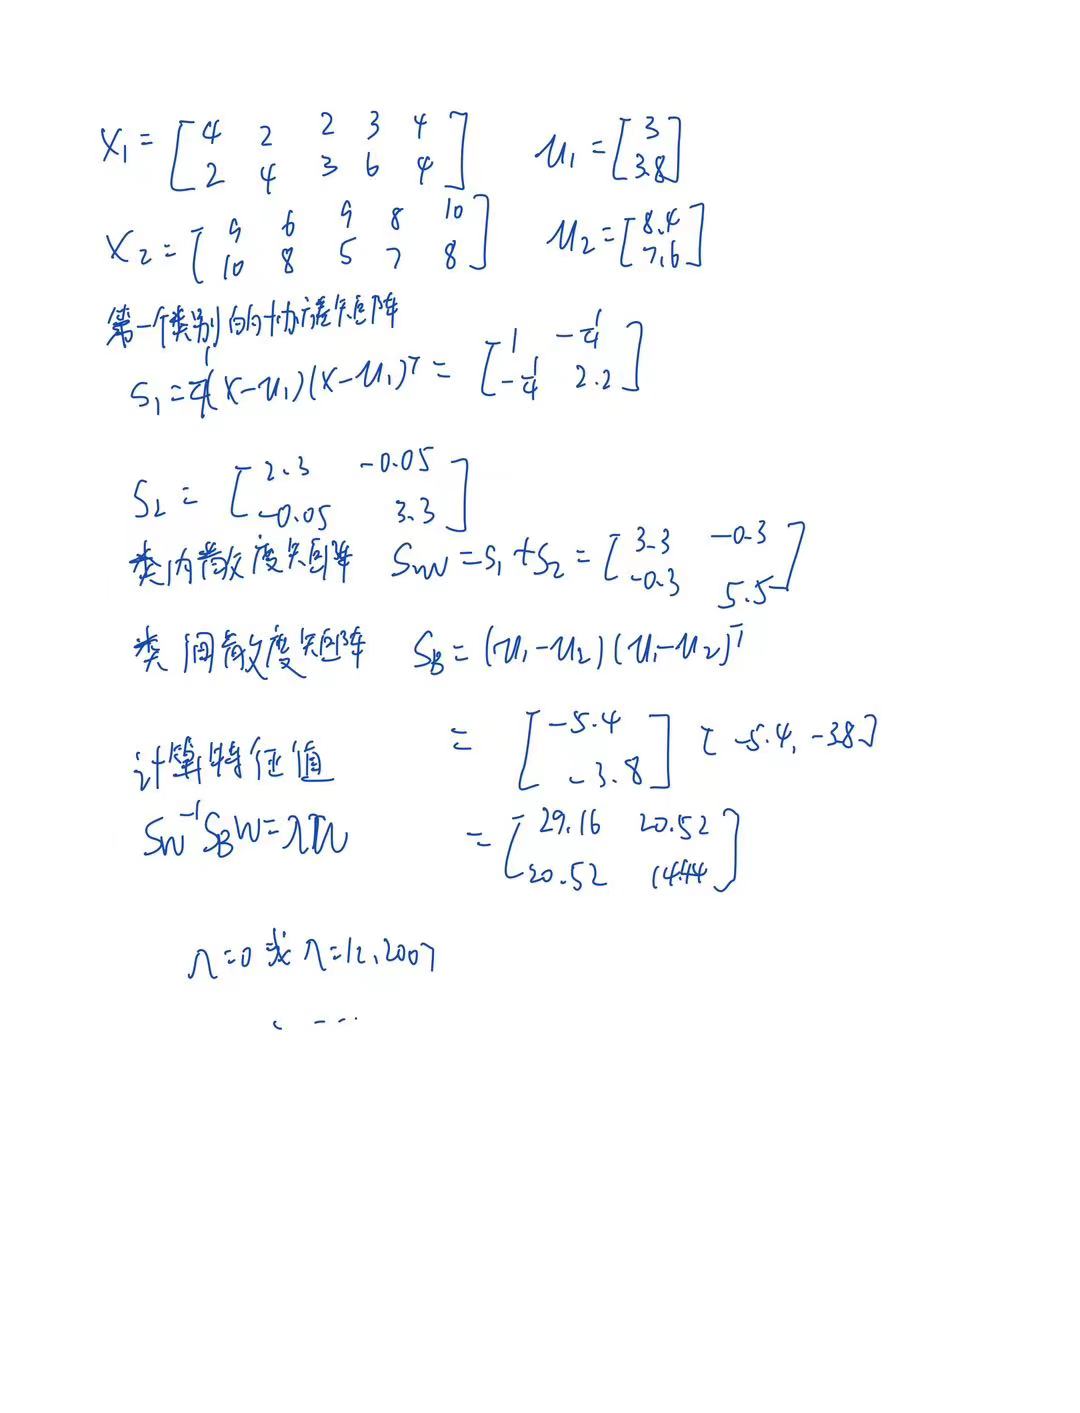 X₁ = [4 2 2 3 4; 2 4 3 6 4] u₁ = [3; 3.8]
X₂ = [9 6 9 8 10; 10 8 5 7 8] u₂ = [8.4; 7.6]
第一个类别的协方差矩阵
S₁ = 1/4 (X-u₁)(X-u₁)ᵀ = [1 -1/4; -1/4 2.2]
S₂ = [2.3 -0.05; -0.05 3.3]
类内散度矩阵 Sw = S₁ + S₂ = [3.3 -0.3; -0.3 5.5]
类间散度矩阵 S_B = (u₁-u₂)(u₁-u₂)ᵀ
= [-5.4; -3.8] [-5.4, -3.8]
计算特征值
Sw⁻¹S_B W = λW
= [29.16 20.52; 20.52 14.44]
λ=0 或 λ=12.2007